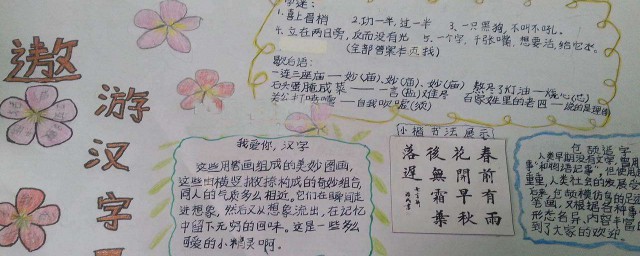 遨
游
汉
字
字谜:
1.喜上眉梢 2.功一半,过一半 3.一只黑狗,不叫不吼。
4.立在两日旁,反而没有光 5.一个字,千张嘴,想要活,给它水。
(全部答案本页找)
歇后语:
一连三座庙——妙(庙)、妙(庙)、妙(庙) 熬尽了灯油——烧心(芯)
石头蛋腌成菜——一言(盐)难尽 百家姓里的老四——说的是理
打喷嚏——自我吹嘘(须)
我爱你,汉字
这些用笔画组成的美妙图画,
这些由横竖撇捺构成的奇妙组合,
同人的气质多么相近。它们在瞬间走
进想象,然后又从想象流出,在记忆
中留下无穷的回味。这是一些多么
可爱的小精灵啊。
小楷书法展示
春前有雨
花開早秋
後無霜葉
落遲
仓颉造字
人类早期没有文字,曾用
事"和"物语记事"但使用
重重,人类社会的发展
后来,仓颉模仿鸟的足
笔画,又根据各种事
形态名异,内容丰富
到了大家的欢迎